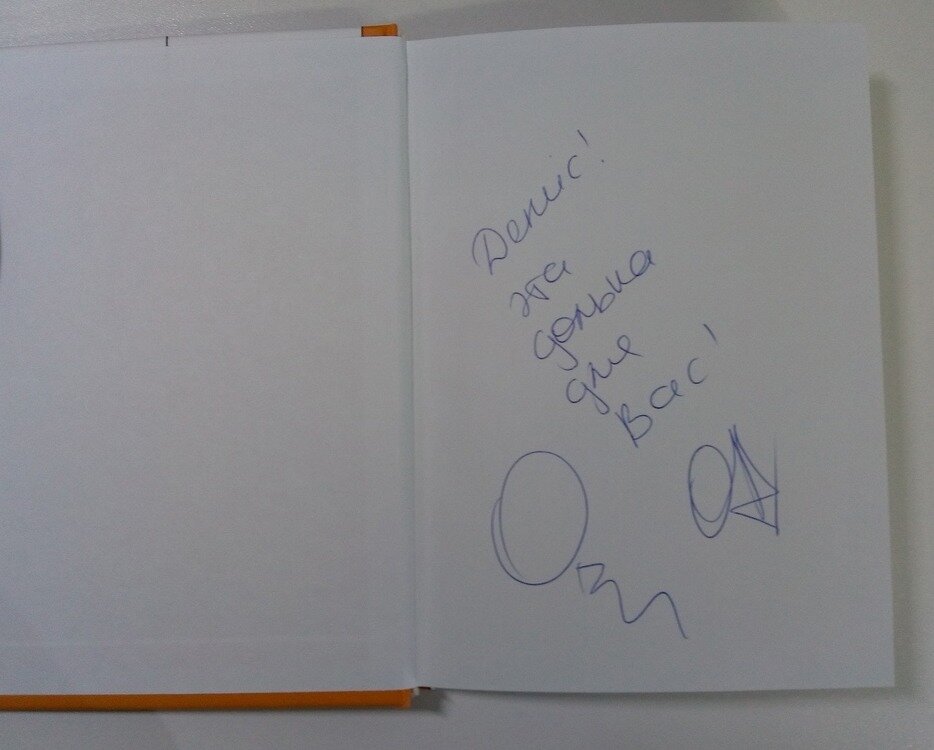 Денис!
эта
долька
для
Вас!